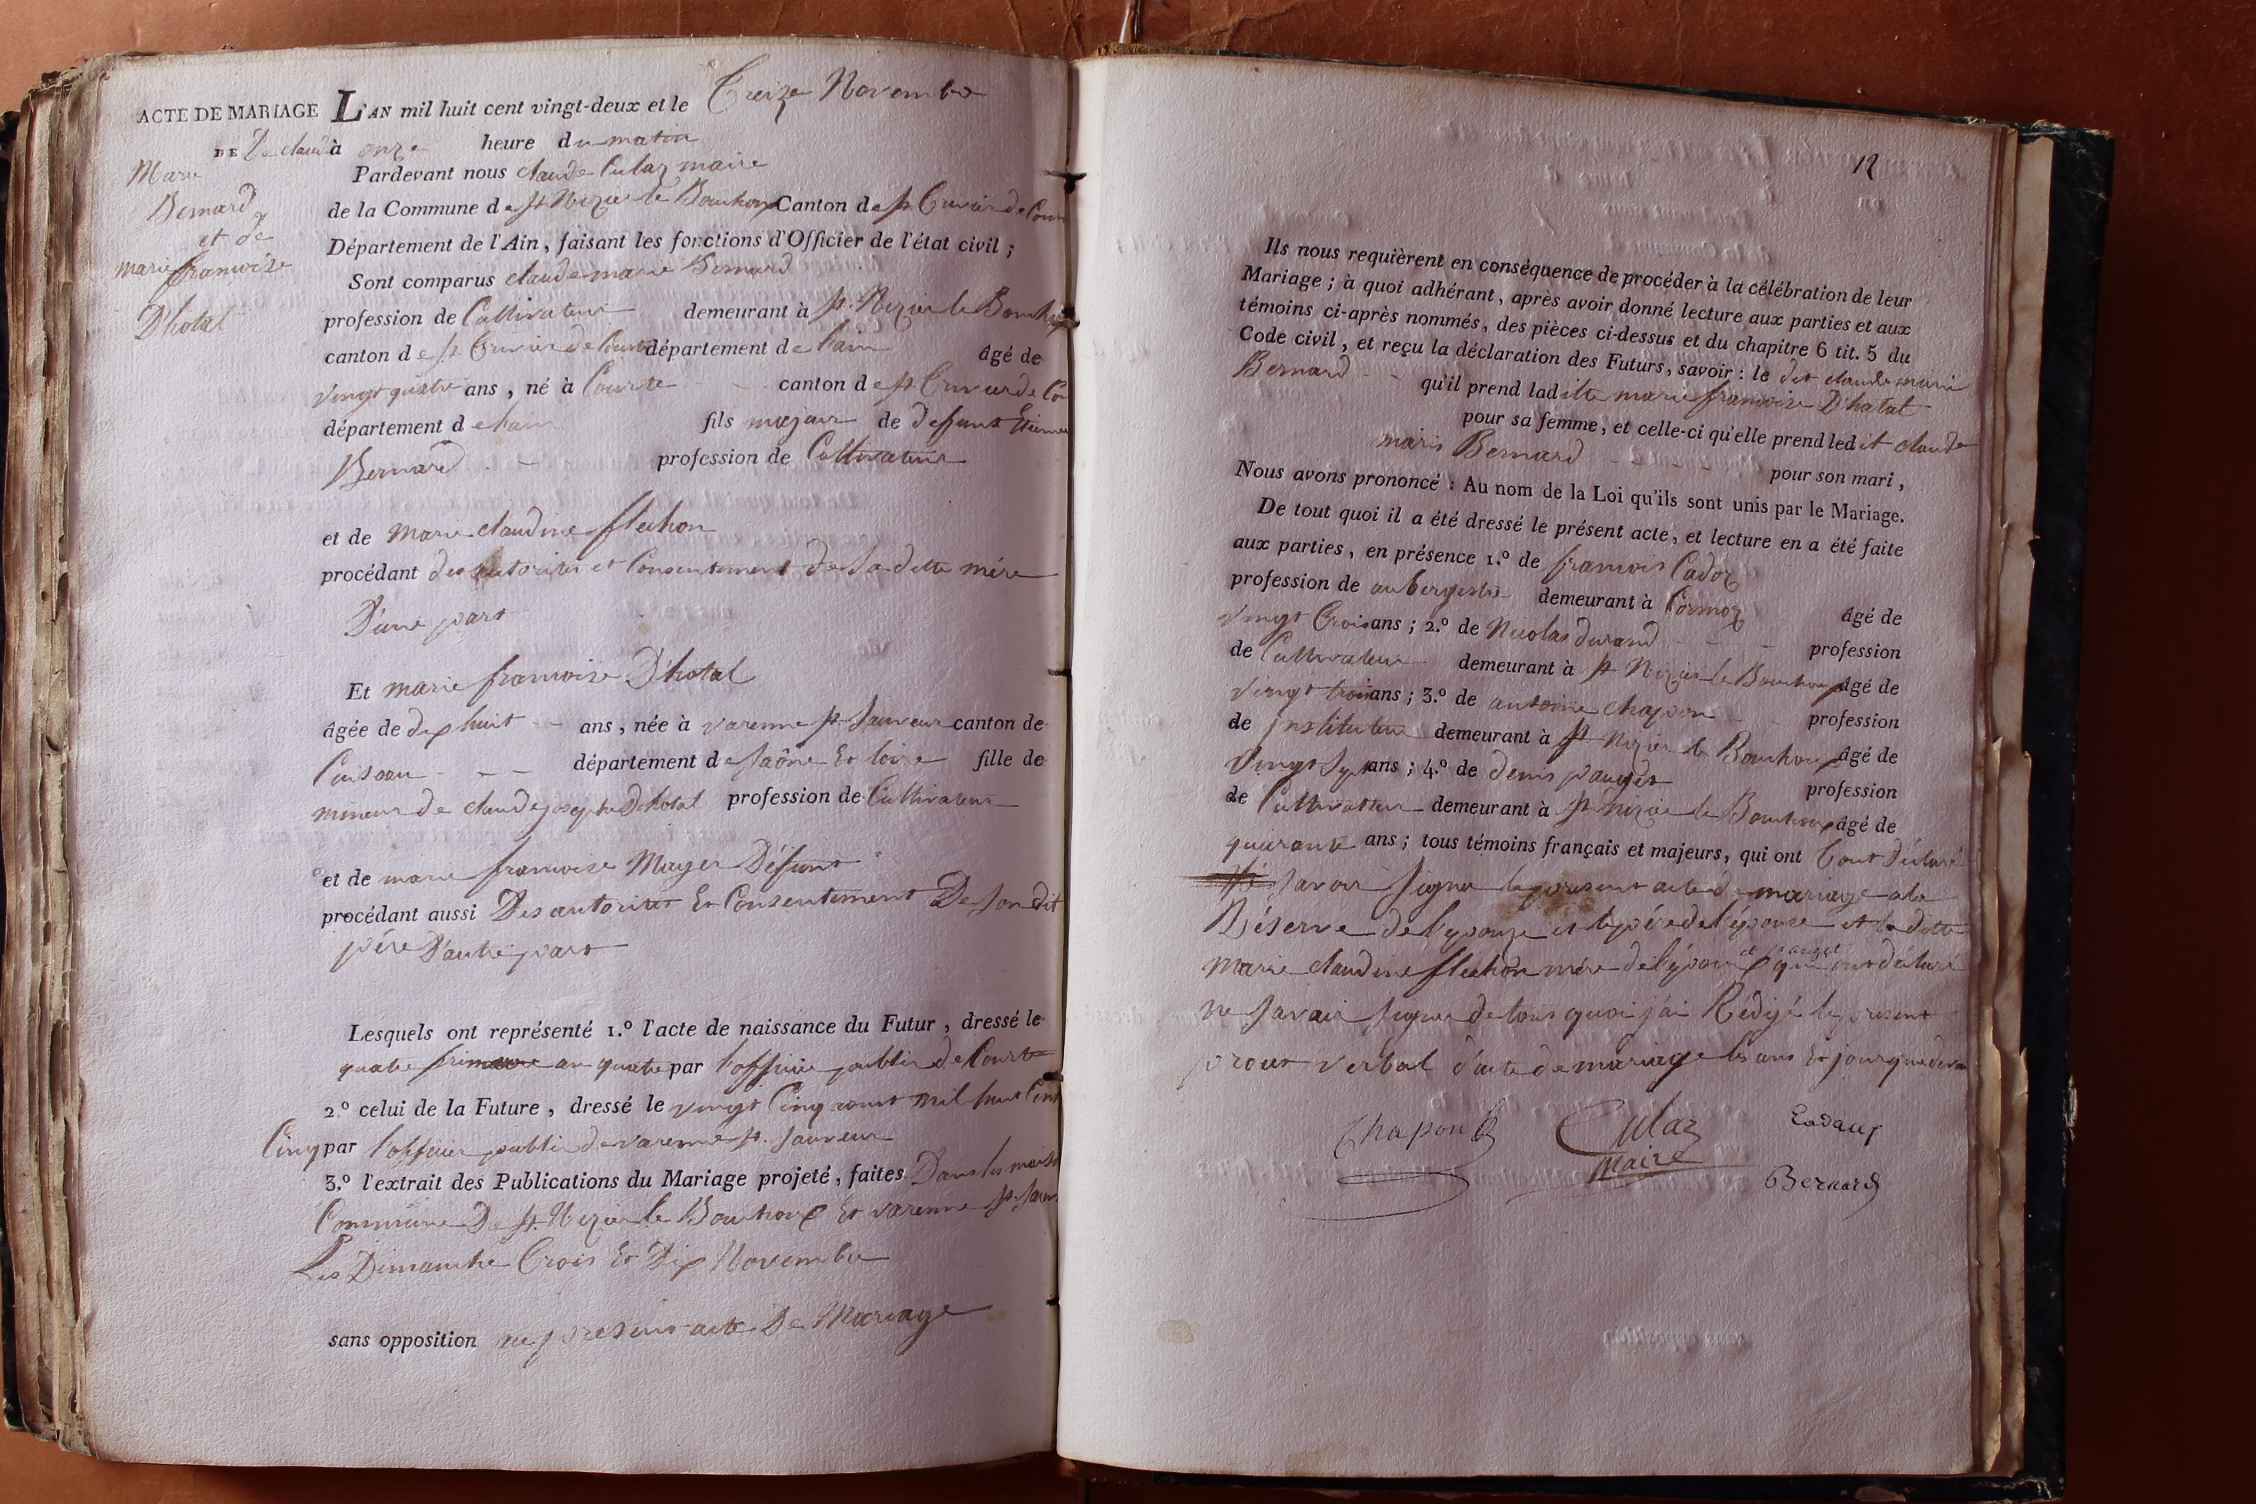 ACTE DE MARIAGE
DE De claude
Marie
Bernard
et de
marie françoise
D'hotal
L'AN mil huit cent vingt-deux et le Treize Novembre
à onze heure du matin
Pardevant nous claude Culaz maire
de la Commune de St Nizier le Bouchoux Canton de St Trivier de Cour
Département de l'Ain, faisant les fonctions d'Officier de l'état civil;
Sont comparus claude marie Bernard
profession de Cultivateur demeurant à St. Nizier le Bouchoux
canton de St Trivier de Courte département de l'ain âgé de
vingt quatre ans, né à Courte canton de St Trivier de Co
département de l'ain fils majeur de défunt Etienne
Bernard profession de Cultivateur
et de marie claudine flechon
procédant des autorités et Consentement de Sa dette mère
D'une part
Et marie françoise D'hotal
âgée de dix huit ans, née à varenne St. Sauveur canton de
Cuiseau département de Saône Et loire fille de
mineur de claude joseph D'hotal profession de Cultivateur
et de marie françoise Mayer Défunt
procédant aussi Des autorités Et Consentement De Son dit
père D'autre part
Lesquels ont représenté 1.º l'acte de naissance du Futur, dressé le
quatre frimaire an quatre par l'officier public de Courte
2.º celui de la Future, dressé le vingt Cinq aout mil huit Cent
Cinq par l'officier public de varenne St. Sauveur
3.º l'extrait des Publications du Mariage projeté, faites Dans les maison
Commune De St. Nizier le Bouchoux Et varenne St. Sauv
Les Dimanche Trois Et Dix Novembre
sans opposition au present acte De Mariage
12
Ils nous requièrent en conséquence de procéder à la célébration de leur
Mariage; à quoi adhérant, après avoir donné lecture aux parties et aux
témoins ci-après nommés, des pièces ci-dessus et du chapitre 6 tit. 5 du
Code civil, et reçu la déclaration des Futurs, savoir: le dit claude marie
Bernard qu'il prend ladite marie françoise D'hotal
pour sa femme, et celle-ci qu'elle prend ledit claude
marie Bernard pour son mari,
Nous avons prononcé: Au nom de la Loi qu'ils sont unis par le Mariage.
De tout quoi il a été dressé le présent acte, et lecture en a été faite
aux parties, en présence 1.º de françois Cadoz
profession de aubergiste demeurant à Cormoz âgé de
vingt Trois ans; 2.º de Nicolas durand profession
de Cultivateur demeurant à St Nizier le Bouchoux âgé de
vingt trois ans; 3.º de antoine chapon profession
de Instituteur demeurant à St Nizier le Bouchoux âgé de
vingt Sept ans; 4.º de denis pauget profession
de Cultivateur demeurant à St Nizier le Bouchoux âgé de
quarante ans; tous témoins français et majeurs, qui ont Tout déclaré
Savoir Signer le present acte de mariage a la
Réserve de l'épouze et le père de l'épouse et la dette
Marie claudine flechon mère de l'époux et pauget qui ont déclaré
ne Savoir Signer de tous quoi j'ai Rédigé le present
procet verbal d'acte de mariage les ans Et jour que devan
Chapon
Culaz
Maire
Cadauz
Bernard